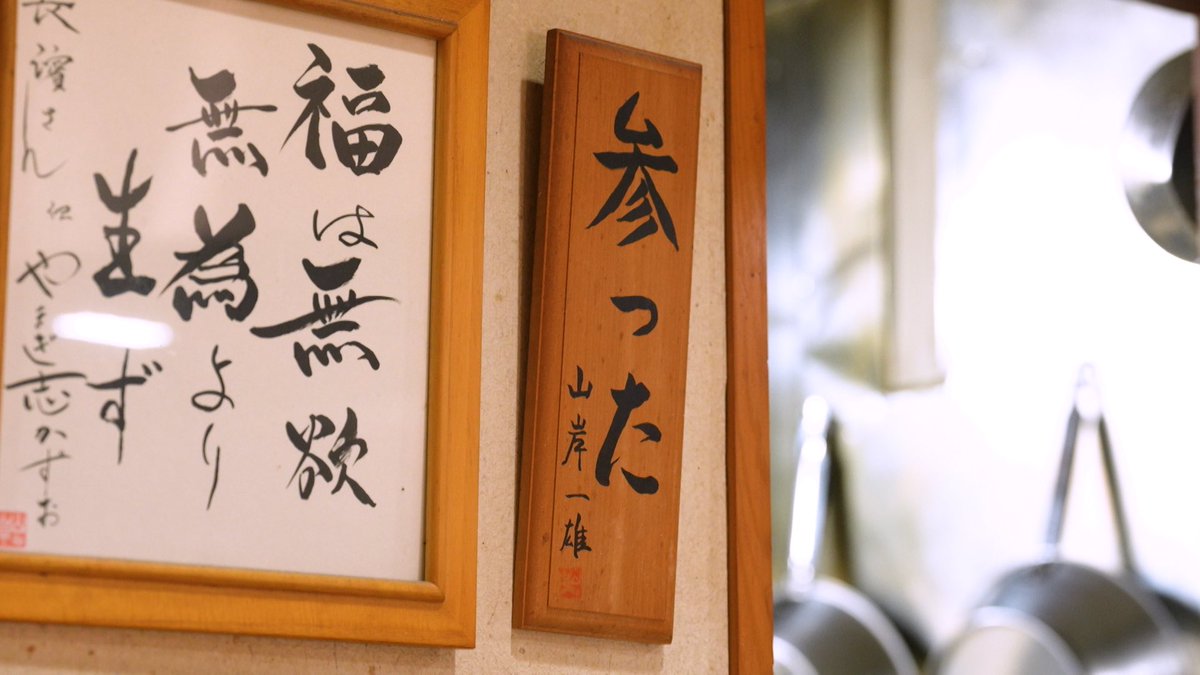 参った
山岸一雄
福は無欲
無為より
生ず
長濱さん江 やまぎ志かずお